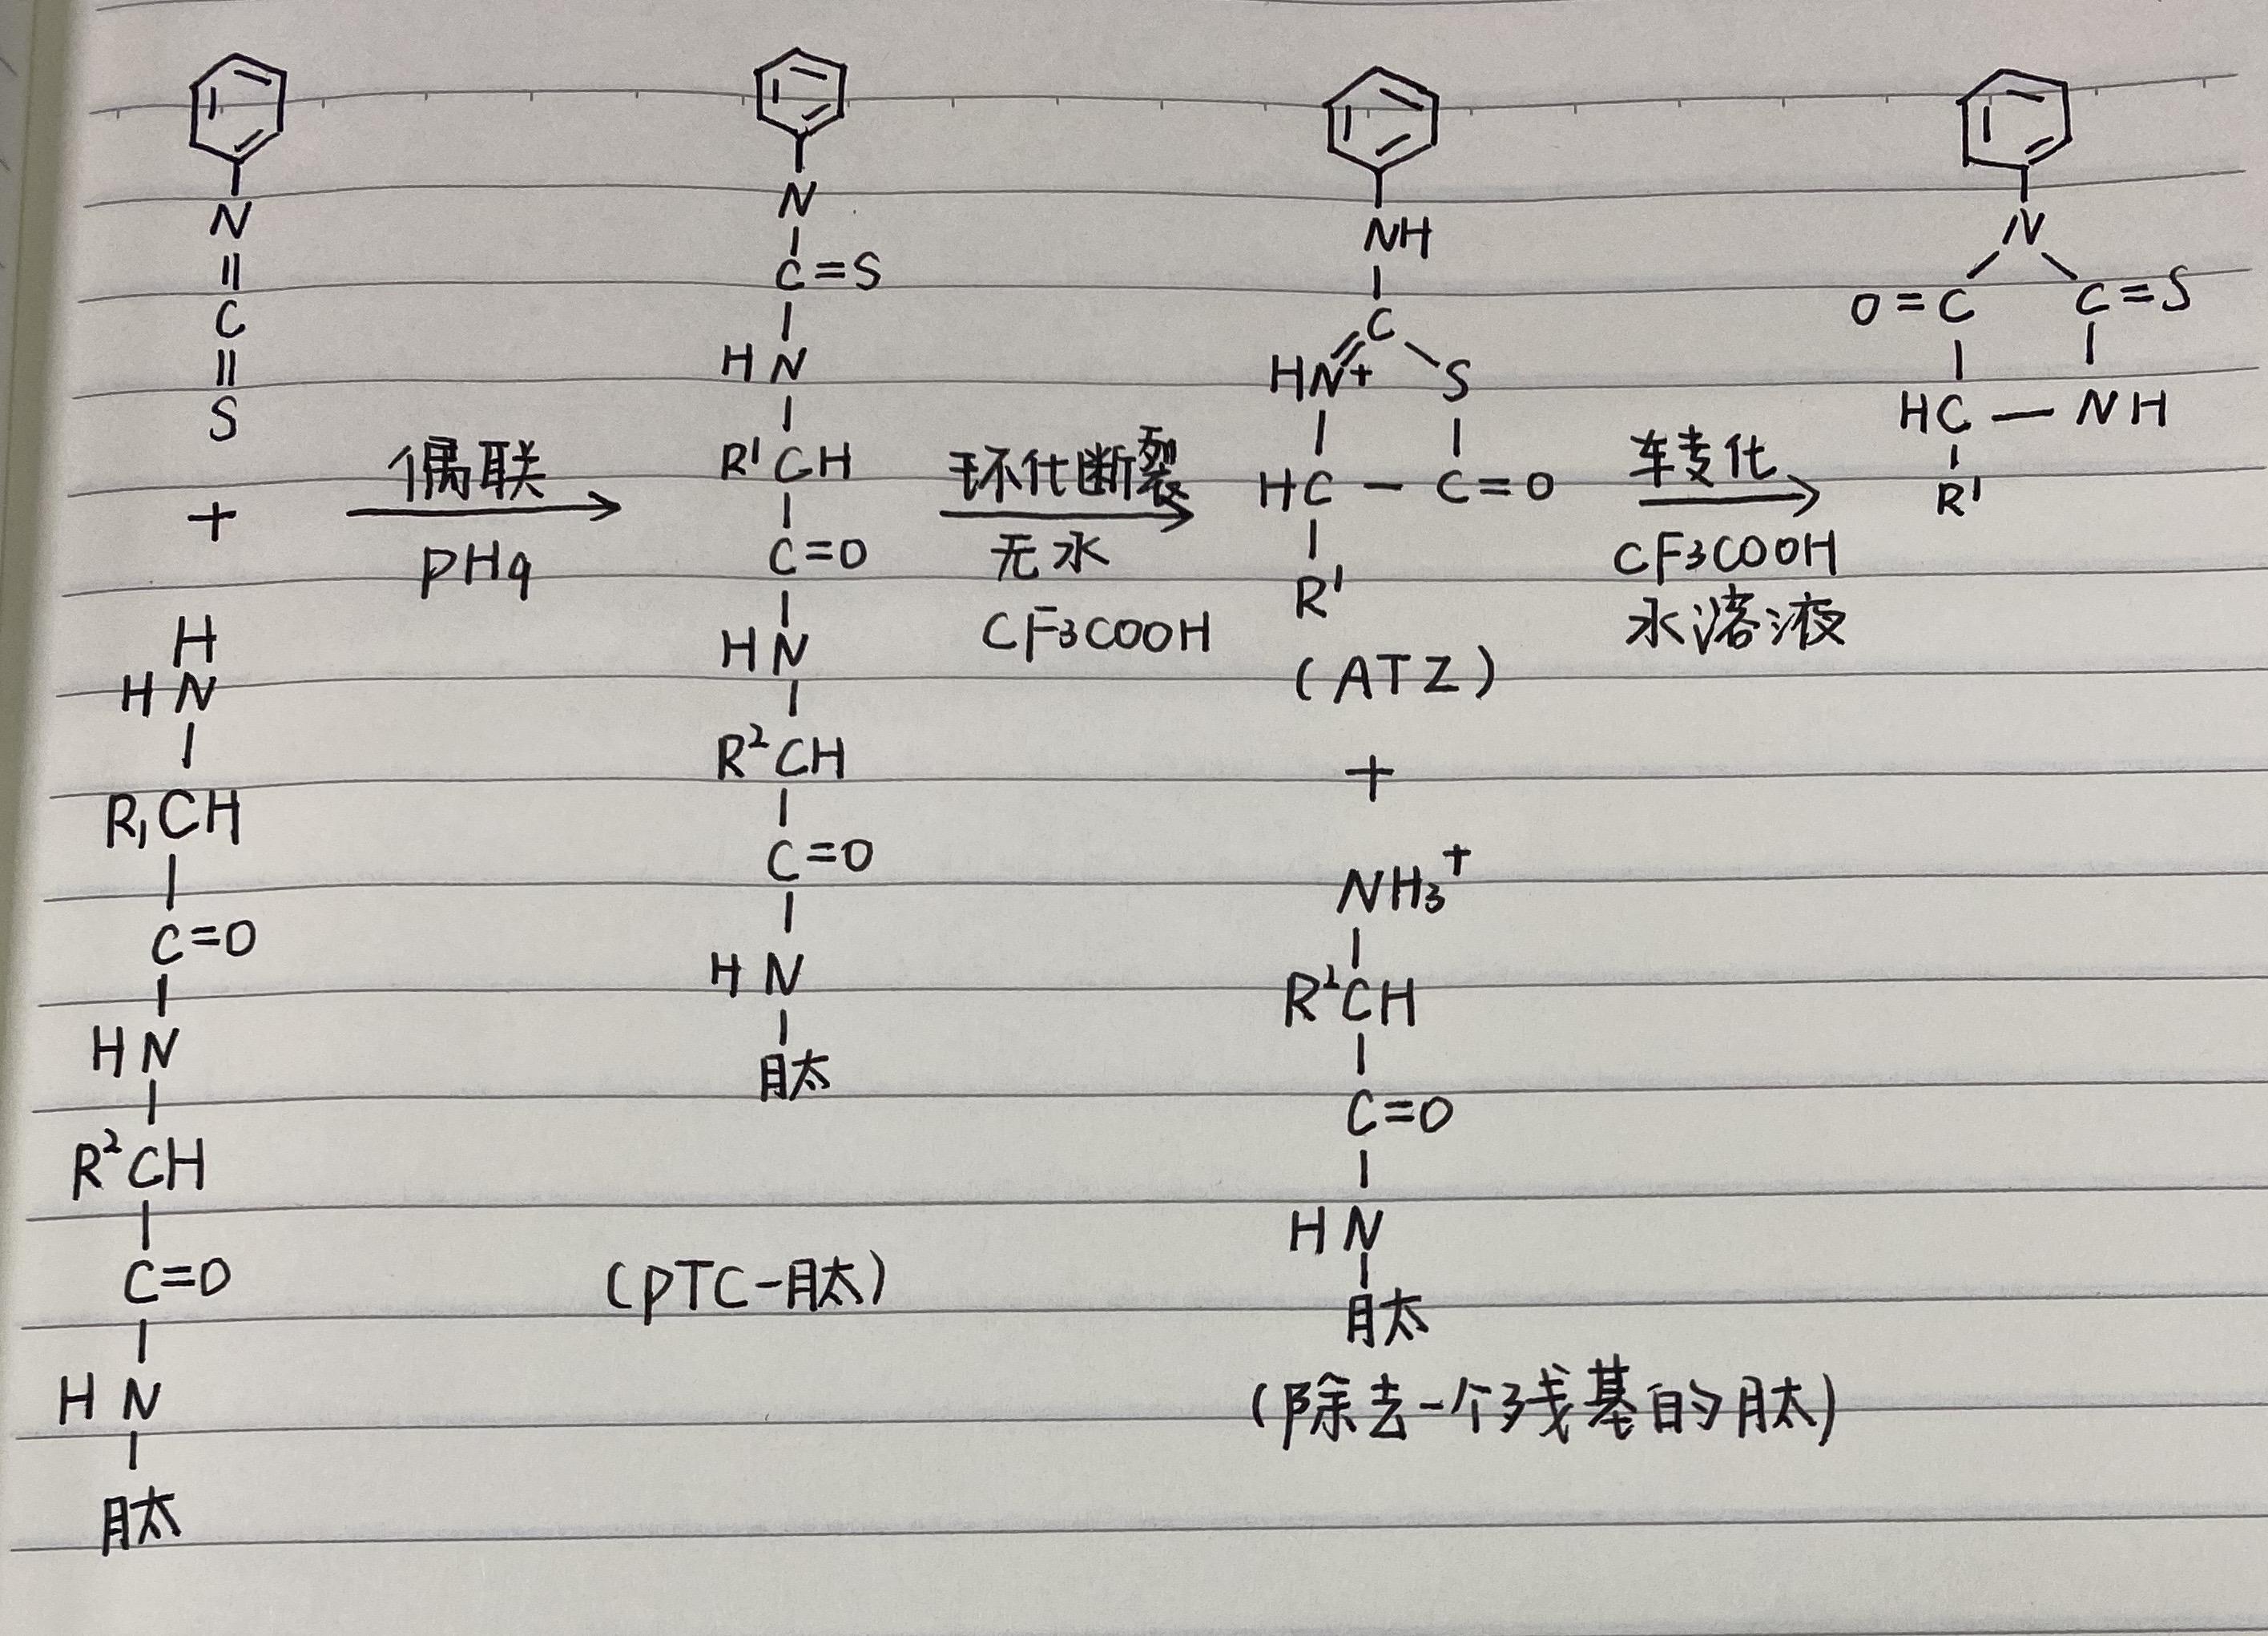 N
||
C
||
S
+
H
HN
|
R₁CH
|
C=O
|
HN
|
R²CH
|
C=O
|
HN
|
肽
偶联
pH9
N
|
C=S
|
HN
|
R¹CH
|
C=O
|
HN
|
R²CH
|
C=O
|
HN
|
肽
(PTC-肽)
环化断裂
无水
CF₃COOH
NH
|
C
HN+ S
| |
HC — C=O
|
R¹
(ATZ)
+
NH₃⁺
|
R²CH
|
C=O
|
HN
|
肽
(除去一个残基的肽)
转化
CF₃COOH
水溶液
N
O=C C=S
| |
HC — NH
|
R¹